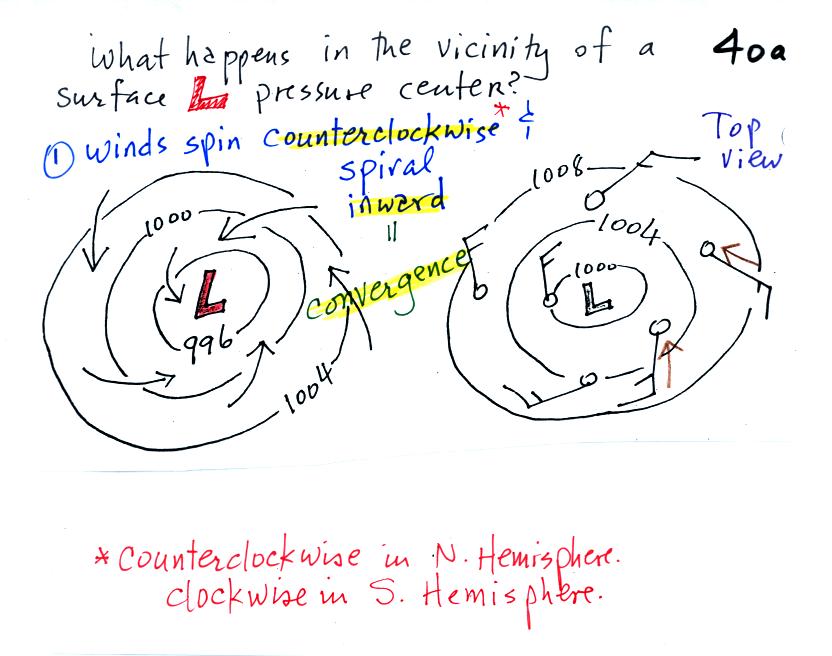 What happens in the vicinity of a 40a
surface L pressure center?
① winds spin counterclockwise* &
spiral
inward
=
convergence
Top
view
1000
L
996
1004
1008
1004
1000
L
* Counterclockwise in N. Hemisphere.
clockwise in S. Hemisphere.